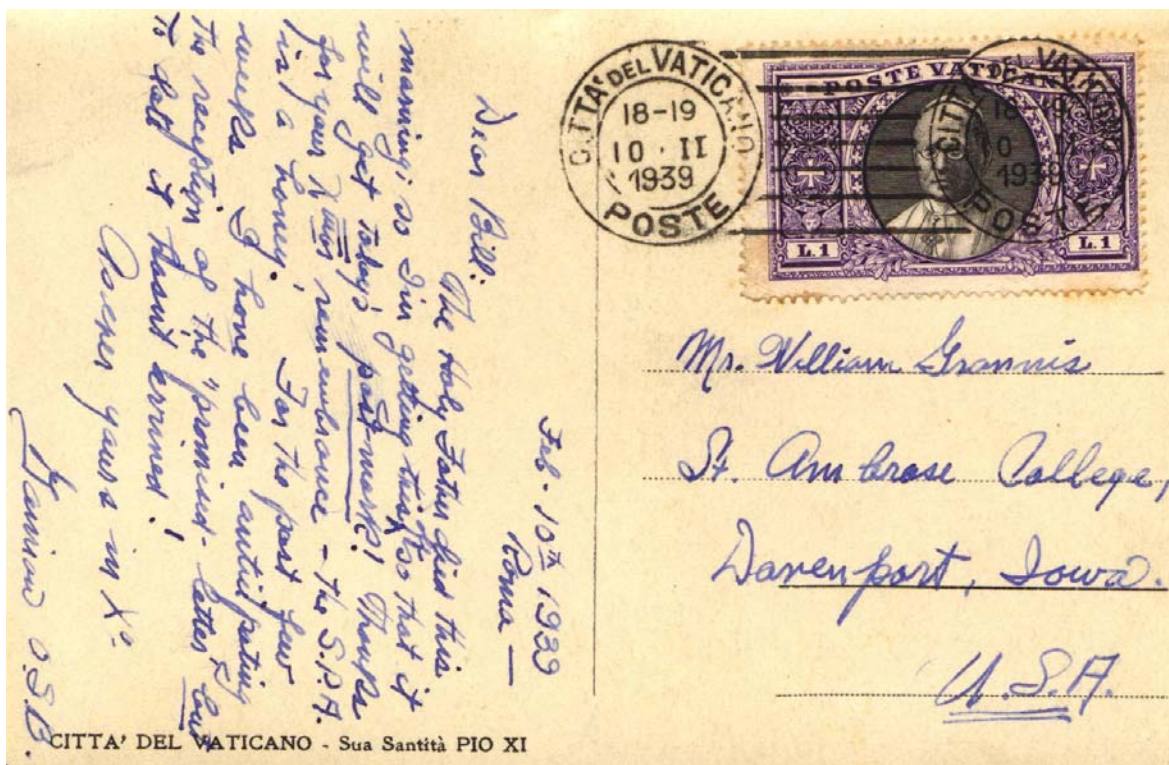 Feb. 10th 1939
Roma —
Dear Bill:
The Holy Father died this
morning; so I'm getting this + so that it
will get today's post-mark! Thanks
for your Xmas remembrance — the S.P.A.
is a honey! For the past few
weeks I have been anticipating
the reception of the "promised-letter" but
to date it hasn't arrived!
As ever yours in Xº
O.S.B.
CITTA' DEL VATICANO - Sua Santità PIO XI
CITTA' DEL VATICANO
18-19
10 · II
1939
POSTE
POSTE VATICANE
L.1
L.1
CITTA' DEL VATICANO
18-19
10 · II
1939
POSTE
Mr. William Grannis
St. Ambrose College,
Davenport, Iowa.
U.S.A.